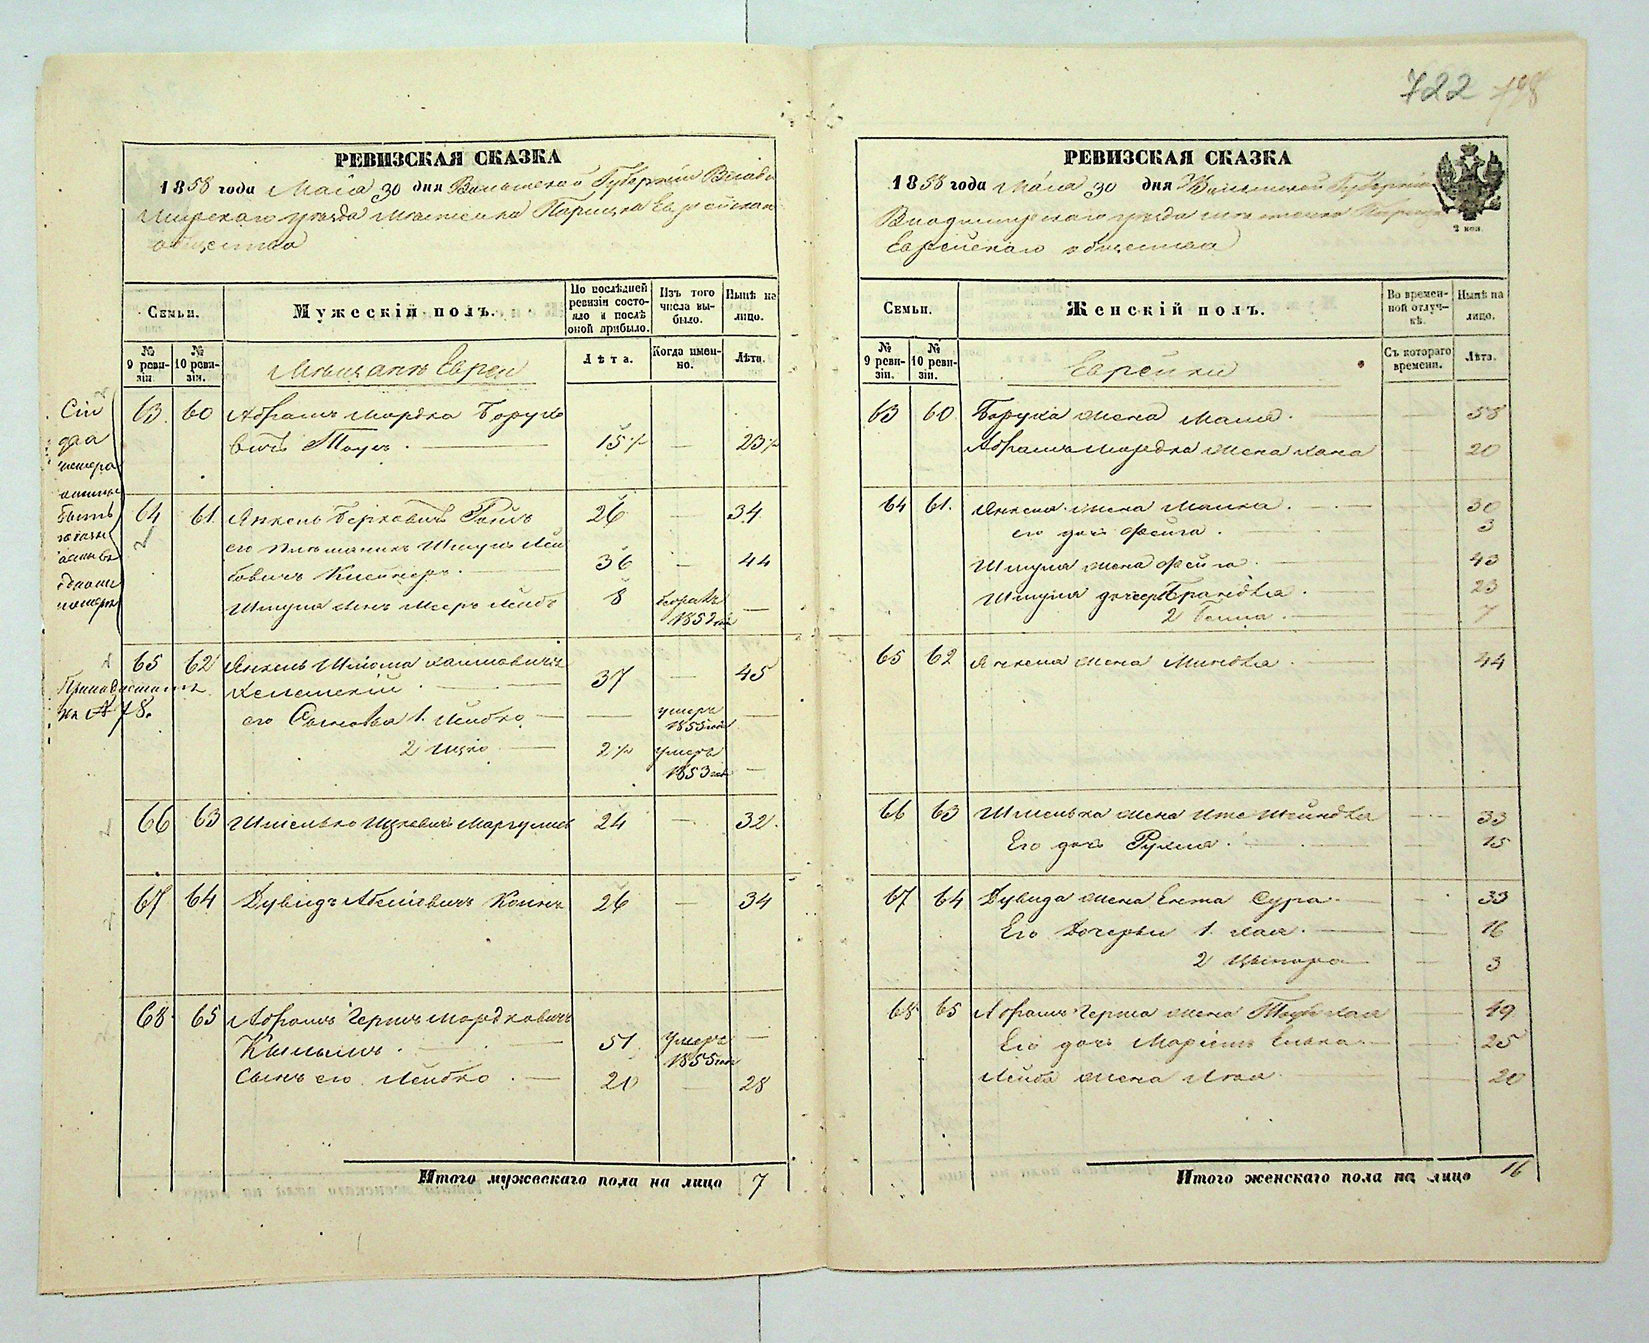 722 198
РЕВИЗСКАЯ СКАЗКА
1858 года Маія 30 дня Виленской Губерніи Влади
мирскаго уезда местечка Еврейскаго
общества
Семьи.
Мужескій полъ.
По послѣдней ревизіи состояло и послѣ оной прибыло.
Изъ того числа выбыло.
Нынѣ на лицо.
№ 9 ревизіи.
№ 10 ревизіи.
Мещане Евреи
Лѣта.
Когда именно.
Лѣта.
Сіи
два
номера
быть
въ
одномъ
номере
63 60 Абрамъ Мордхо Борухо
вичъ 15½ — 23½
64 61 Янкель Берковичъ 26 — 34
его племянникъ Шмуйло Лей
бовичъ 36 — 44
Шмуйла сынъ Мееръ Лейбъ 8 1852 —
65 62 Янкель Шліома Хаимовичъ
37 — 45
на № 78.
его Сыновья 1. Лейбко — — умеръ 1855 —
2 Ицко — 2½ умеръ 1853 —
66 63 Шмелько Ицковичъ Маргулисъ 24 — 32.
67 64 Дувидъ Абелевичъ 26 — 34
68 65 Абрамъ Гершъ Мордховичъ
51 умеръ 1855 —
Сынъ его Лейбко — 20 — 28
Итого мужескаго пола на лицо 7
РЕВИЗСКАЯ СКАЗКА
1858 года Маія 30 дня Виленской Губерніи
Владимирскаго уезда местечка
Еврейскаго общества
2 коп.
Семьи.
Женскій полъ.
Во временной отлучкѣ.
Нынѣ на лицо.
№ 9 ревизіи.
№ 10 ревизіи.
Еврейки
Съ котораго времени.
Лѣта.
63 60 Боруха жена — 58
Абрама Мордка жена Хана — 20
64 61. Янкеля жена Малка. — 30
его дочь Фейга. 3
Шмуйла жена Фейга. — 43
Шмуйла дочери Брандля. — 23
2 Бейла. — 7
65 62 Янкеля жена Миндля. — 44
66 63 Шмелька жена Ите Шейндля — 33
Его дочь Рухля. — 15
67 64 Дувида жена Ента Сура. — 33
Его Дочери 1. Хая. — 16
2 Ципора — 3
68 65 Абрама Герша жена — 49
Его дочь — 25
Лейба жена — 20
Итого женскаго пола на лицо 16